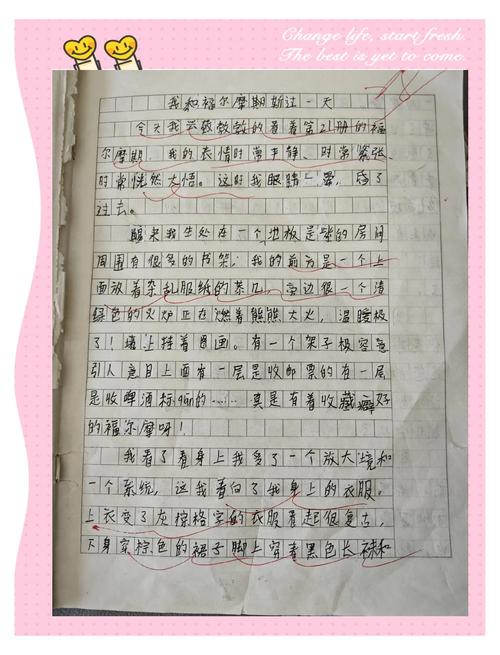 Change life, start fresh.
The best is yet to come.
我和福尔摩斯过一天
今天我云致致的看着第21册的福
尔摩斯,我的表情时常平静、时常紧张、
时常恍然大悟。这时我眼睛一晕,昏了
过去。
醒来我坐处在一个地板是紫的房间
周围有很多的书架;我的前方是一个上
面放着杂乱报纸的茶几,旁边很一个渣
绿色的火炉正在燃着熊熊大火,温暖极
了!墙上挂着图画。有一个架子极容易
引人意目上面有一层是收邮票的有一层
是收啤酒标的……真是有着收藏癖好
的福尔摩呀!
我看了看身上我多了一个放大境和
一个系统,这我看向了我身上的衣服。
上衣变了灰棕格字的衣服看起很复古,
下身穿棕色的裙子脚上穿着黑色长袜和